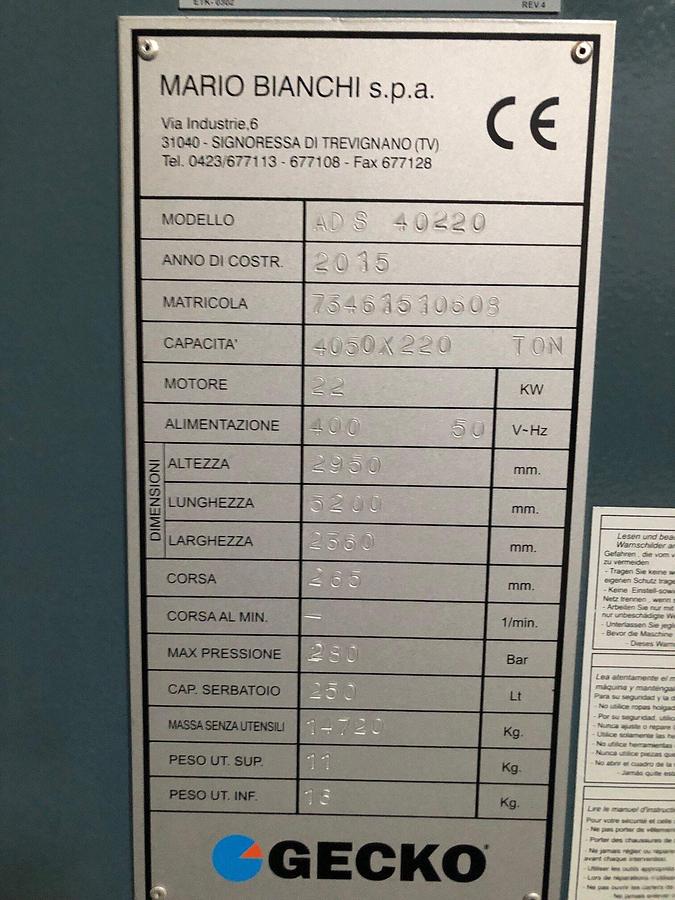 REV.4
MARIO BIANCHI s.p.a.
Via Industrie,6
31040 - SIGNORESSA DI TREVIGNANO (TV)
Tel. 0423/677113 - 677108 - Fax 677128
CE
MODELLO ADS 40220
ANNO DI COSTR. 2015
MATRICOLA
CAPACITA' 4050X220 TON
MOTORE 22 KW
ALIMENTAZIONE 400 50 V~Hz
DIMENSIONI
ALTEZZA 2950 mm.
LUNGHEZZA 5200 mm.
LARGHEZZA 2360 mm.
CORSA 265 mm.
CORSA AL MIN. — 1/min.
MAX PRESSIONE 280 Bar
CAP. SERBATOIO 250 Lt
MASSA SENZA UTENSILI 14720 Kg.
PESO UT. SUP. 11 Kg.
PESO UT. INF. Kg.
GECKO
Lesen und
Warnschilder
Gefahren , die vom
zu vermeiden
- Tragen Sie keine
eigenen Schutz
- Keine Einstell-
Netz trennen , wenn
- Arbeiten Sie nur mit
nur unbeschädigte
- Unterlassen Sie
- Bevor die Maschine
- Dieses
Lea atentamente el
máquina y
Para su seguridad y la
- No utilice ropas
- Por su seguridad,
- Nunca ajuste o
- Utilice solamente las
- No utilice herramientas
- Nunca utilice piezas
- No abrir el cuadro de la
- Jamás quite
Lire le manuel
Pour votre sécurité et celle
- Ne pas porter de
- Porter des chaussures de
- Ne jamais régler ou
avant chaque intervention.
- Utiliser les outils
- Lors de
- Ne pas ouvrir les
- Ne jamais